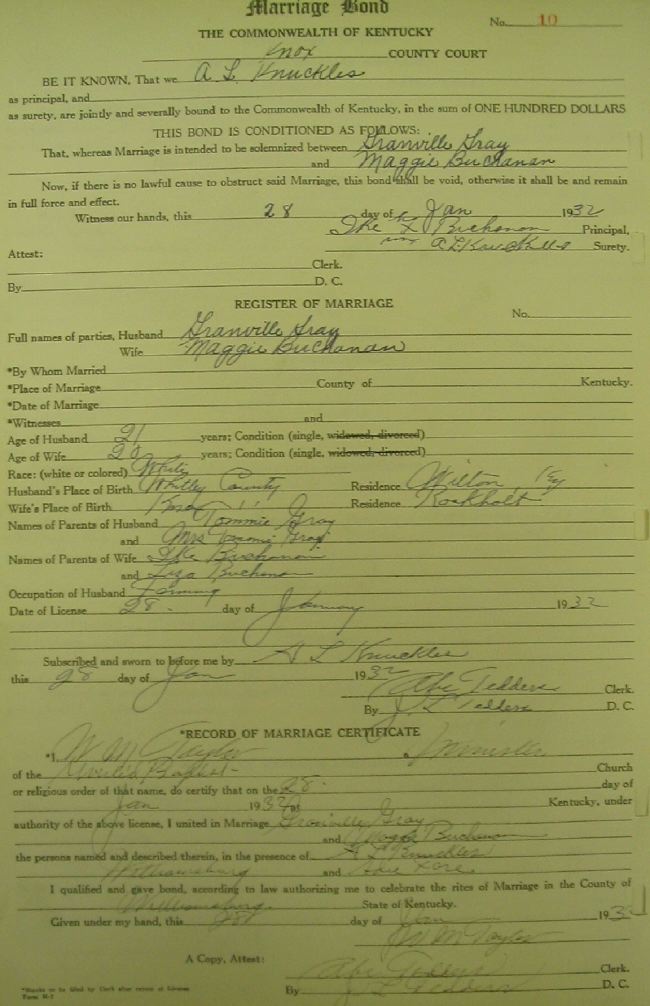 Marriage Bond
No. 10
THE COMMONWEALTH OF KENTUCKY
Knox COUNTY COURT
BE IT KNOWN, That we A L Knuckles
as principal, and
as surety, are jointly and severally bound to the Commonwealth of Kentucky, in the sum of ONE HUNDRED DOLLARS
THIS BOND IS CONDITIONED AS FOLLOWS:
That, whereas Marriage is intended to be solemnized between Granville Gray
and Maggie Buchanan
Now, if there is no lawful cause to obstruct said Marriage, this bond shall be void, otherwise it shall be and remain
in full force and effect.
Witness our hands, this 28 day of Jan 1932
Ike Buchanan Principal,
A L Knuckles Surety.
Attest:
Clerk.
By D. C.
REGISTER OF MARRIAGE
No.
Full names of parties, Husband Granville Gray
Wife Maggie Buchanan
*By Whom Married
*Place of Marriage County of Kentucky.
*Date of Marriage
*Witnesses and
Age of Husband 21 years; Condition (single, widowed, divorced)
Age of Wife 20 years; Condition (single, widowed, divorced)
Race: (white or colored) White
Husband's Place of Birth Whitley County Residence Wilton, Ky
Wife's Place of Birth Knox " Residence Rockholt
Names of Parents of Husband Tommie Gray
and Mrs Tommie Gray
Names of Parents of Wife Ike Buchanan
and Liza Buchanan
Occupation of Husband Farming
Date of License 28. day of January 1932
Subscribed and sworn to before me by A L Knuckles
this 28 day of Jan 1932
Abe Tedders Clerk.
By J L Tedders D. C.
*RECORD OF MARRIAGE CERTIFICATE
*I, W M Taylor a minister
of the Baptist Church
or religious order of that name, do certify that on the 28. day of
Jan 1932 Kentucky, under
authority of the above license, I united in Marriage Granville Gray
and Maggie Buchanan
the persons named and described therein, in the presence of A L Knuckles
Williamsburg and
I qualified and gave bond, according to law authorizing me to celebrate the rites of Marriage in the County of
Williamsburg. State of Kentucky.
Given under my hand, this 28 day of Jan 193
W M Taylor
A Copy, Attest:
Abe Tedders Clerk.
By J L Tedders D. C.
*Blanks to be filled by Clerk after return of License